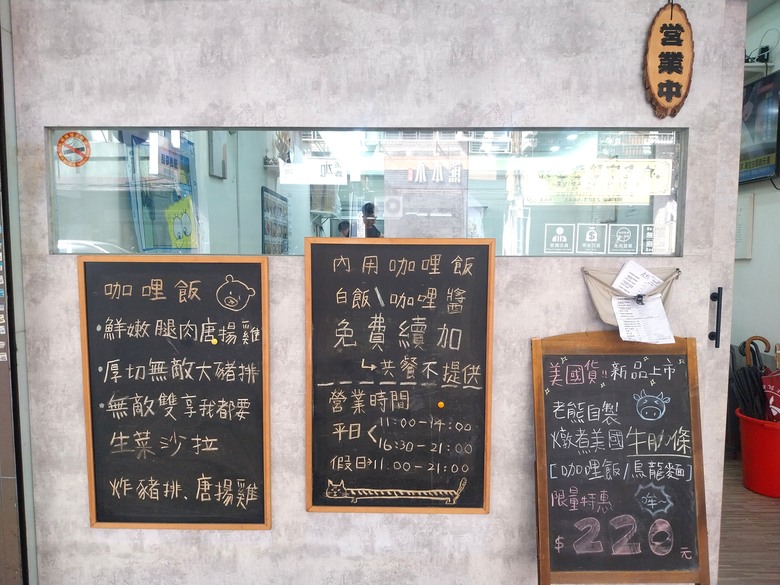 営業中
咖哩飯
•鮮嫩腿肉唐揚雞
•厚切無敵大豬排
•無敵雙享我都要
生菜沙拉
炸豬排、唐揚雞
內用咖哩飯
白飯\咖哩醬
免費續加
↳共餐不提供
營業時間
平日<11:00-14:00
16:30-21:00
假日→11:00-21:00
美國貨!!新品上市
老熊自製
燉煮美國牛肋條
[咖哩飯/烏龍麵]
限量特惠
哞~
$220元